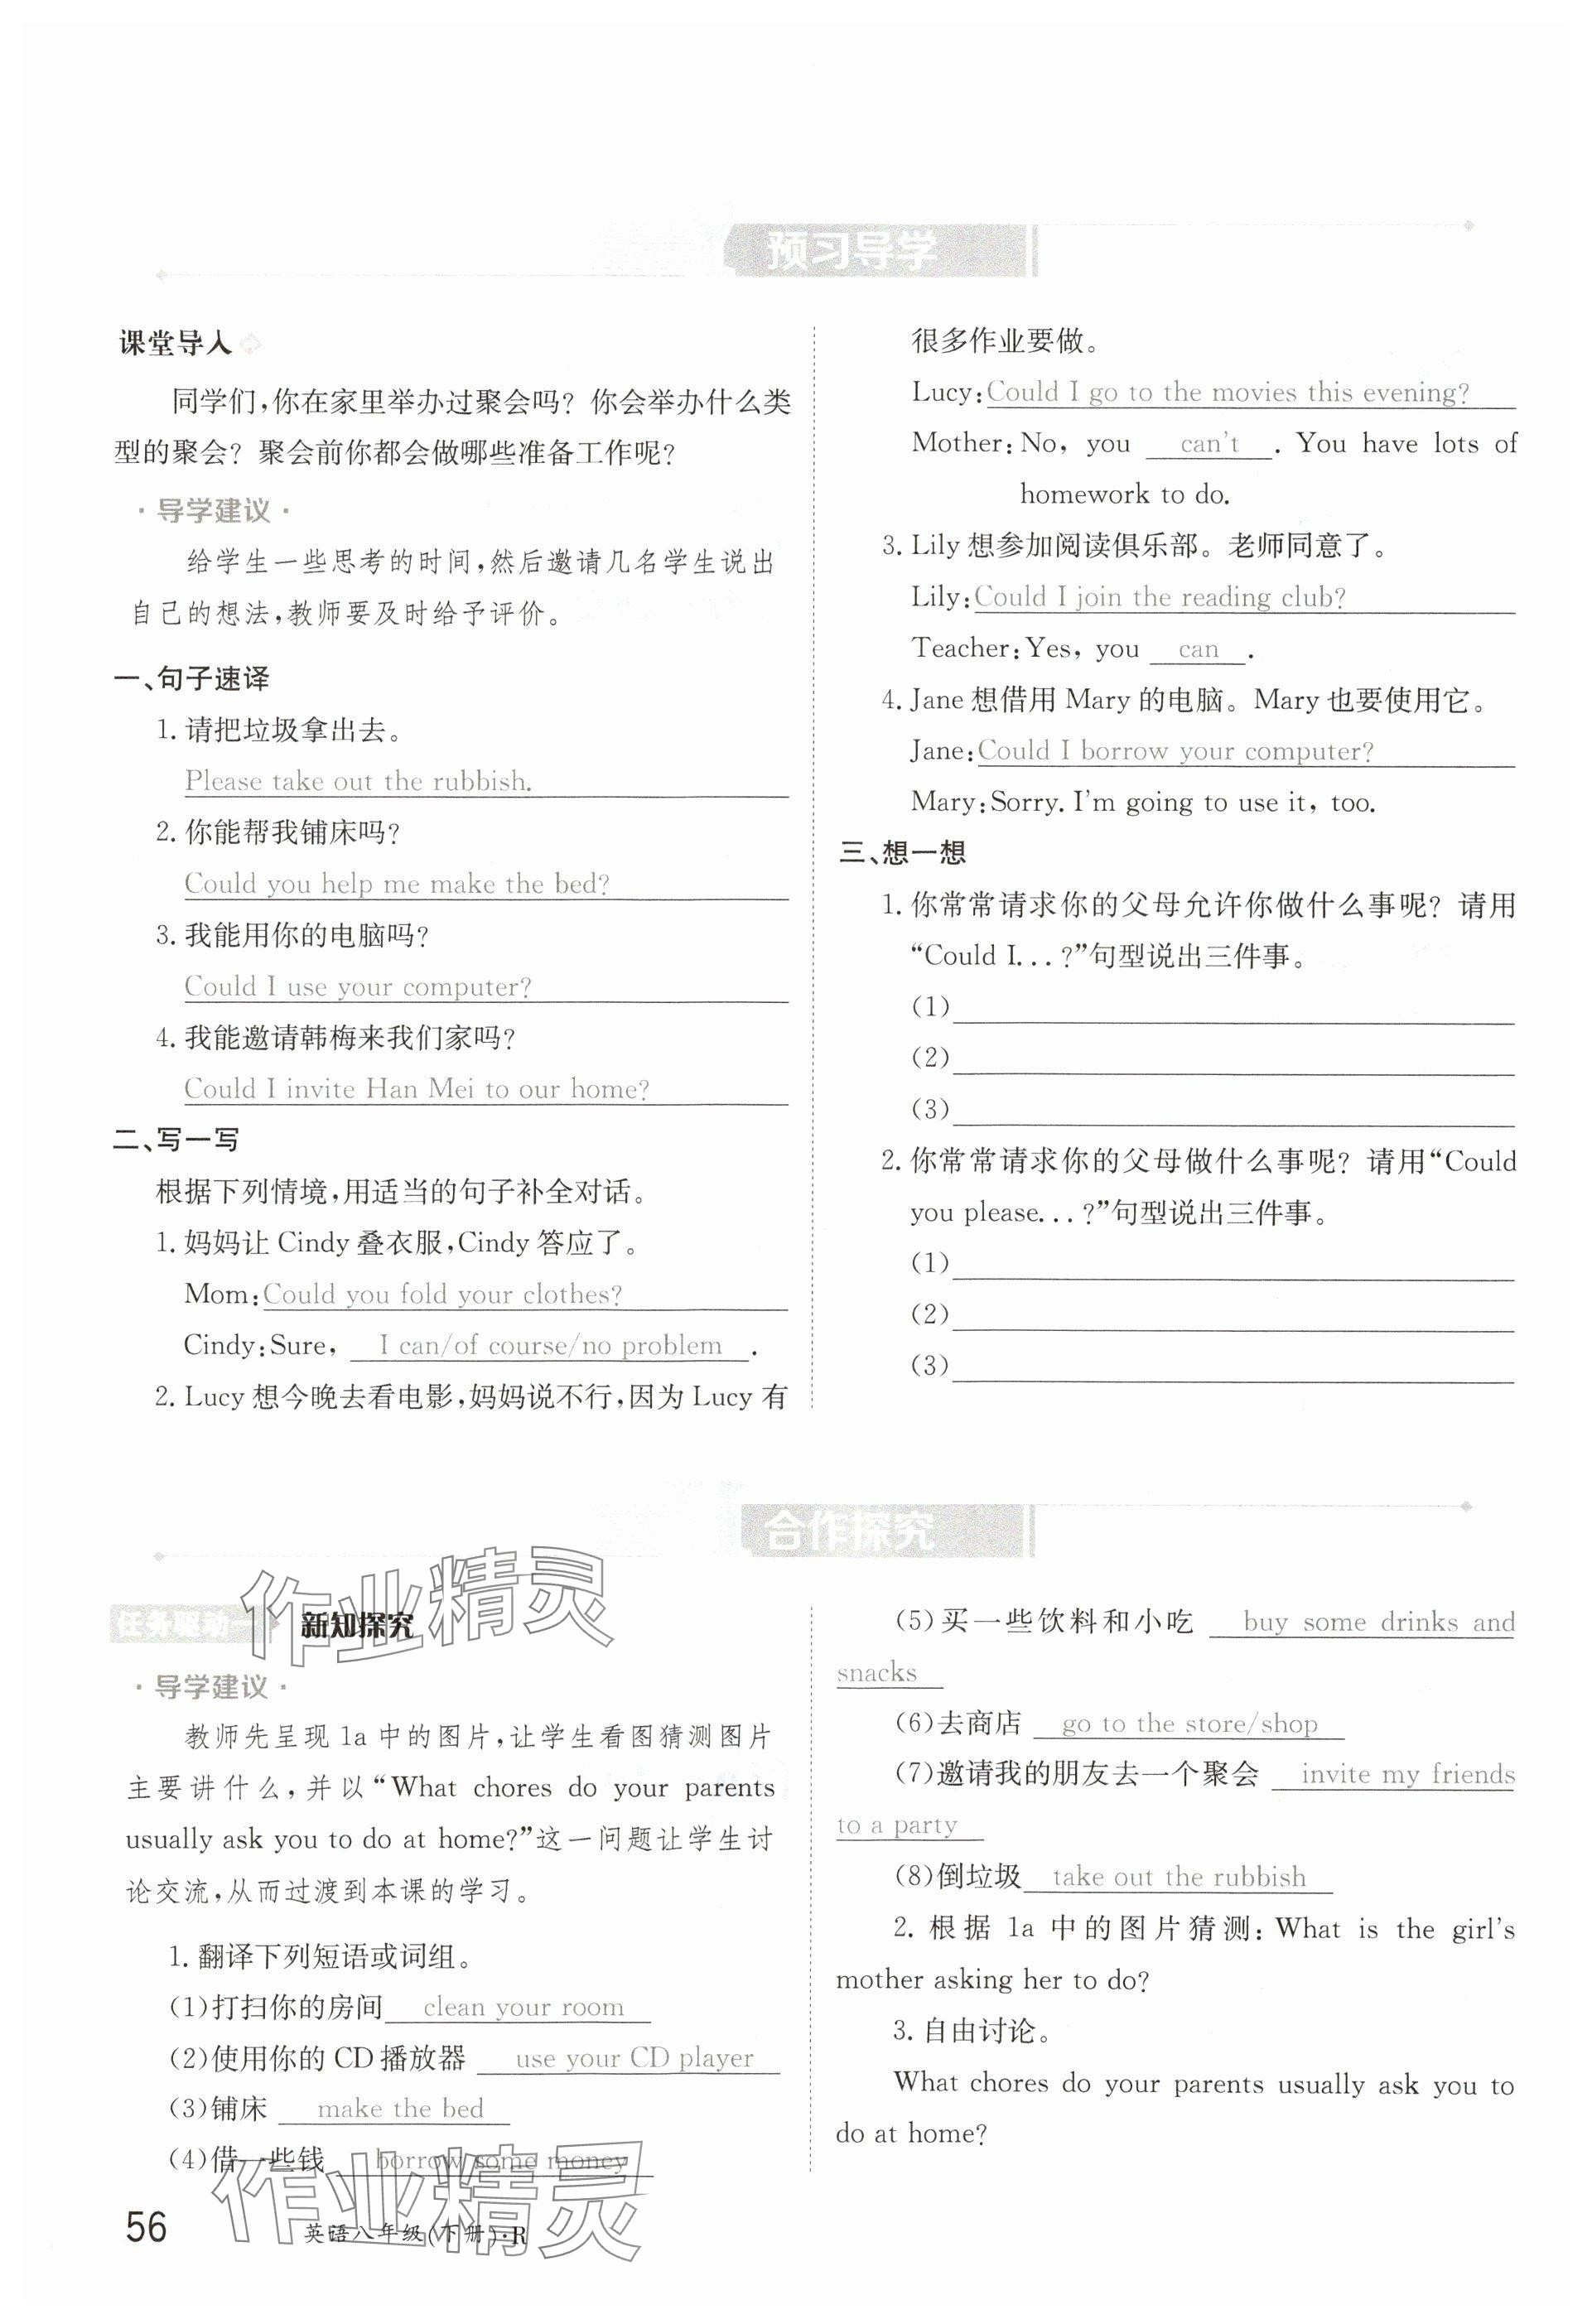 预习导学
课堂导入
同学们,你在家里举办过聚会吗？你会举办什么类
型的聚会？聚会前你都会做哪些准备工作呢？
·导学建议·
给学生一些思考的时间,然后邀请几名学生说出
自己的想法,教师要及时给予评价。
一、句子速译
1. 请把垃圾拿出去。
Please take out the rubbish.
2. 你能帮我铺床吗？
Could you help me make the bed?
3. 我能用你的电脑吗？
Could I use your computer?
4. 我能邀请韩梅来我们家吗？
Could I invite Han Mei to our home?
二、写一写
根据下列情境,用适当的句子补全对话。
1. 妈妈让 Cindy 叠衣服,Cindy 答应了。
Mom: Could you fold your clothes?
Cindy: Sure, I can/of course/no problem.
2. Lucy 想今晚去看电影,妈妈说不行,因为 Lucy 有
很多作业要做。
Lucy: Could I go to the movies this evening?
Mother: No, you can't. You have lots of
homework to do.
3. Lily 想参加阅读俱乐部。老师同意了。
Lily: Could I join the reading club?
Teacher: Yes, you can.
4. Jane 想借用 Mary 的电脑。Mary 也要使用它。
Jane: Could I borrow your computer?
Mary: Sorry. I'm going to use it, too.
三、想一想
1. 你常常请求你的父母允许你做什么事呢？请用
“Could I...?”句型说出三件事。
(1)
(2)
(3)
2. 你常常请求你的父母做什么事呢？请用“Could
you please...?”句型说出三件事。
(1)
(2)
(3)
合作探究
任务驱动一 新知探究
·导学建议·
教师先呈现 1a 中的图片,让学生看图猜测图片
主要讲什么,并以“What chores do your parents
usually ask you to do at home?”这一问题让学生讨
论交流,从而过渡到本课的学习。
1. 翻译下列短语或词组。
(1)打扫你的房间 clean your room
(2)使用你的 CD 播放器 use your CD player
(3)铺床 make the bed
(4)借一些钱 borrow some money
(5)买一些饮料和小吃 buy some drinks and
snacks
(6)去商店 go to the store/shop
(7)邀请我的朋友去一个聚会 invite my friends
to a party
(8)倒垃圾 take out the rubbish
2. 根据 1a 中的图片猜测: What is the girl's
mother asking her to do?
3. 自由讨论。
What chores do your parents usually ask you to
do at home?
作业精灵
作业精灵
56
英语八年级(下册)·R